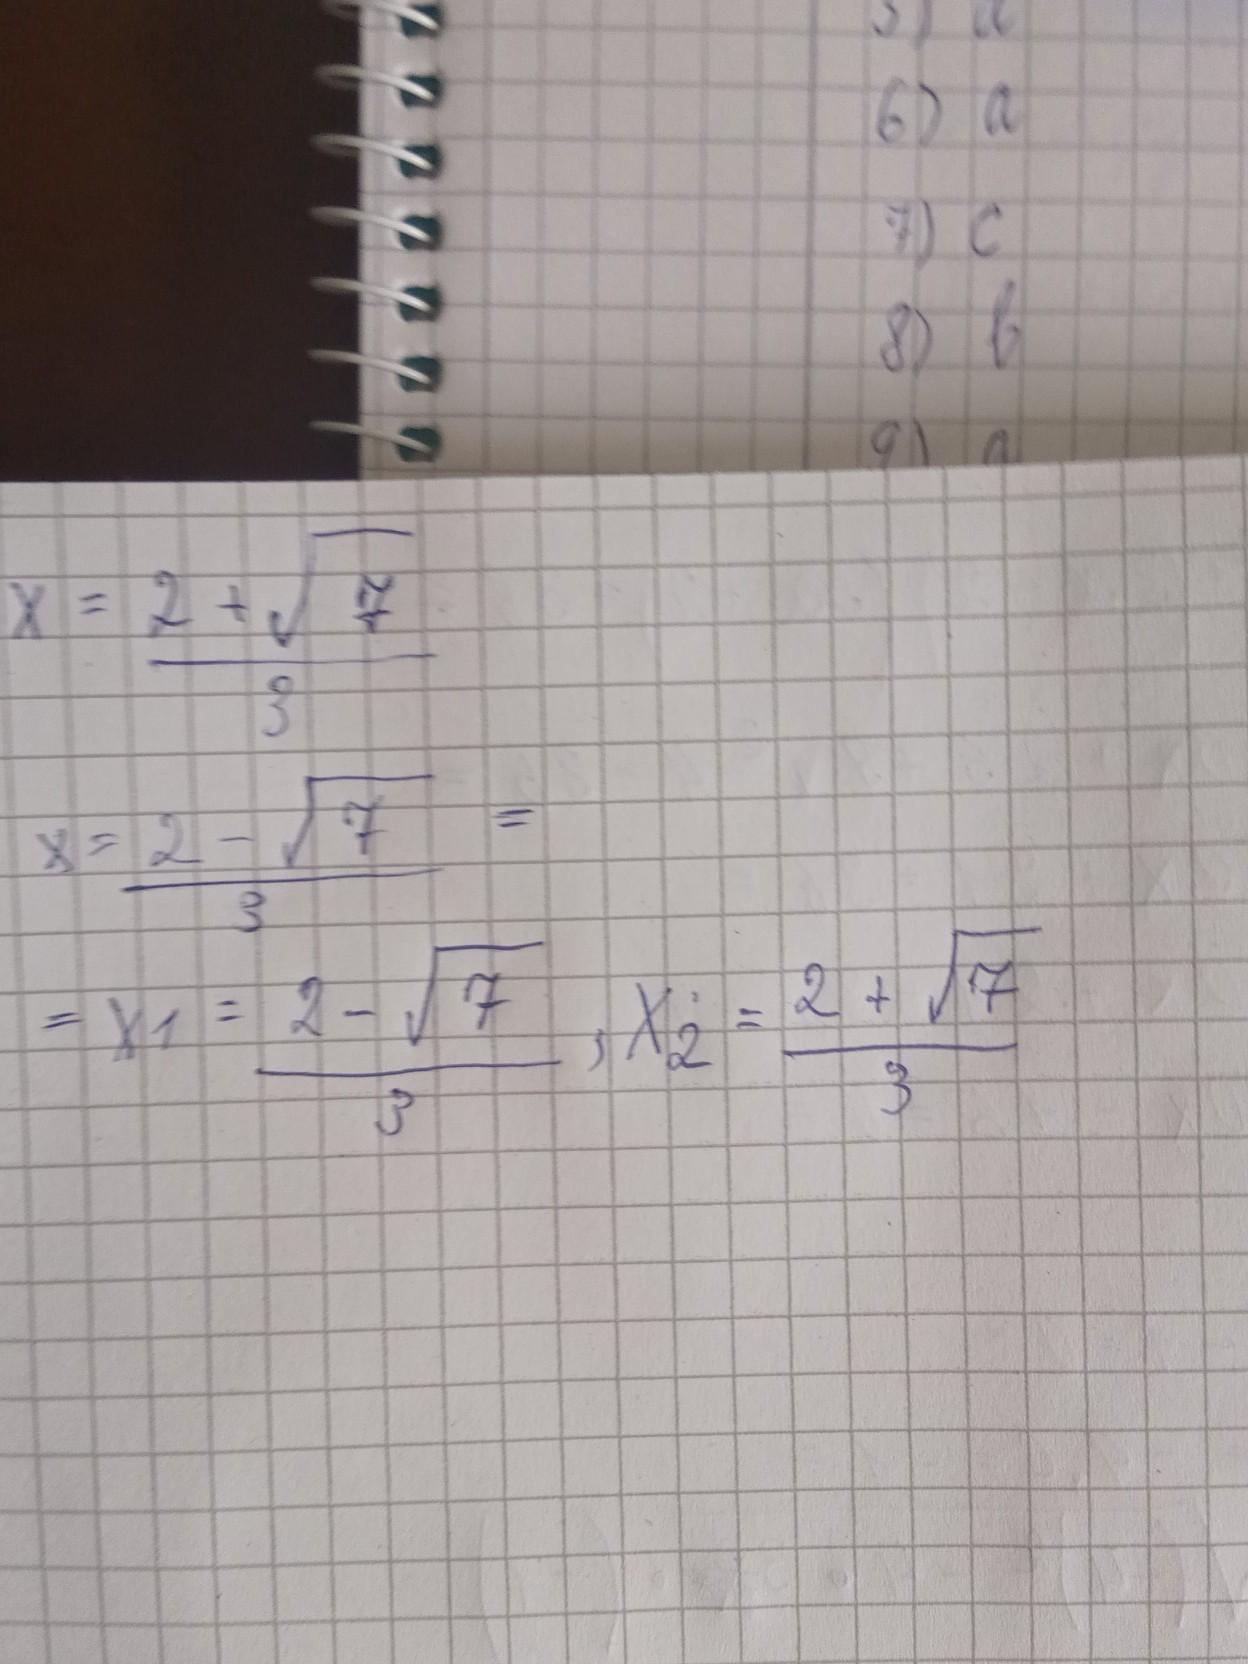 5) a
6) a
7) c
8) b
9) a
x = 2 + √7
3
x = 2 - √7 =
3
= x1 = 2 - √7 , x2 = 2 + √7
3 3